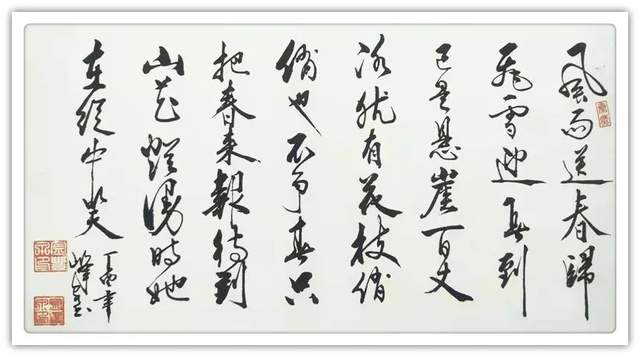 風雨送春歸
飛雪迎春到
已是懸崖百丈
冰犹有花枝俏
俏也不争春只
把春来報待到
山花爛漫時她
在丛中笑